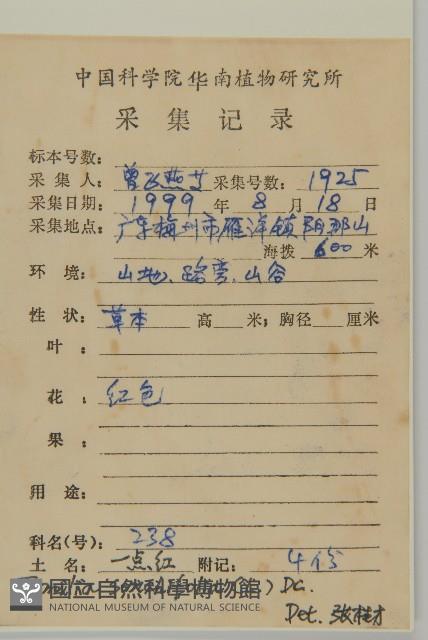 中国科学院华南植物研究所
采集记录
标本号数：
采集人：曾飞燕等 采集号数：1925
采集日期：1999年8月18日
采集地点：广东梅州市雁洋镇阴那山
海拨 600 米
环境：山地、路旁、山谷
性状：草本 高 米；胸径 厘米
叶：
花：红色
果：
用途：
科名(号)：238
土名：一点红 附记：4份
) DC.
國立自然科學博物館
NATIONAL MUSEUM OF NATURAL SCIENCE
Det. 张桂才